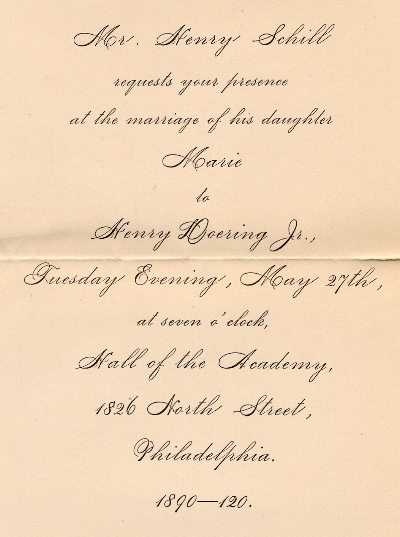 Mr. Henry Schill
requests your presence
at the marriage of his daughter
Marie
to
Henry Doering Jr.,
Tuesday Evening, May 27th,
at seven o'clock,
Hall of the Academy,
1826 North Street,
Philadelphia.
1890—120.